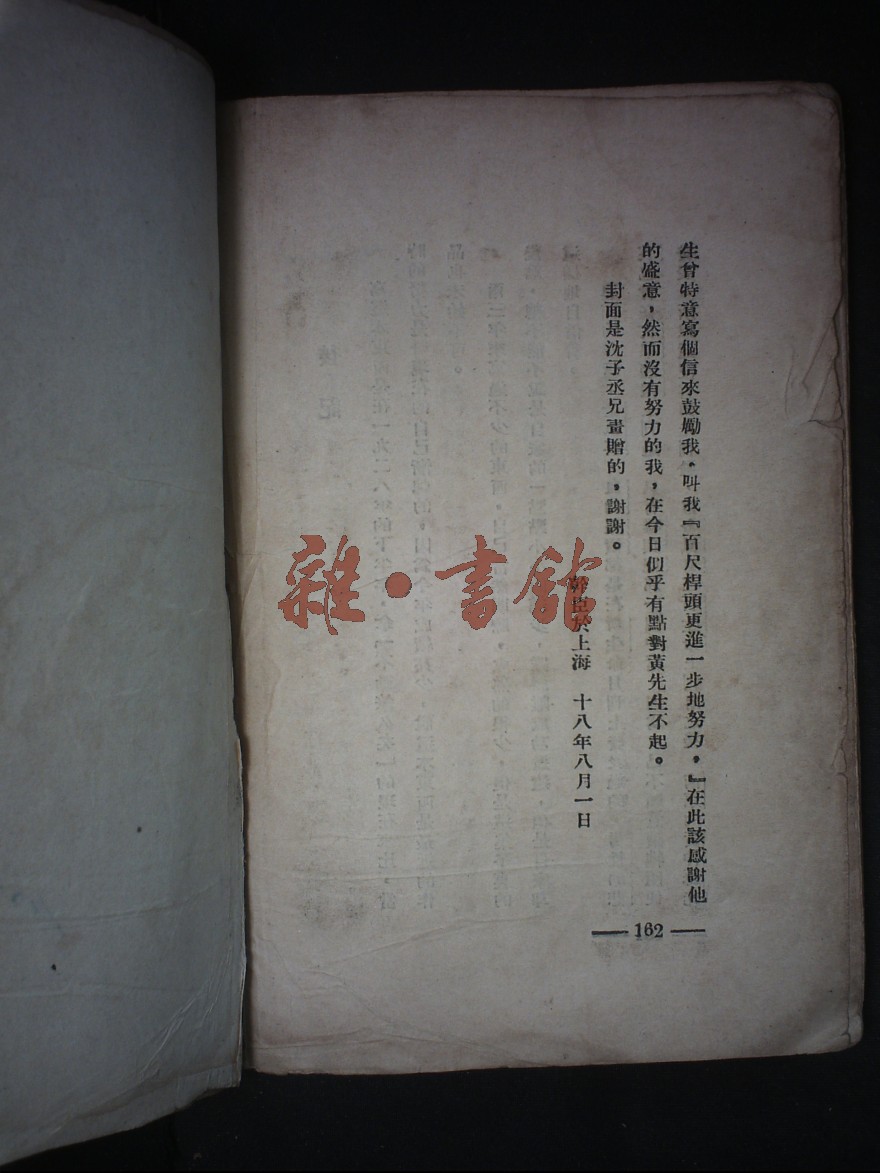 生曾特意寫個信來鼓勵我，叫我『百尺桿頭更進一步地努力，』在此該感謝他
的盛意，然而沒有努力的我，在今日似乎有點對黃先生不起。
封面是沈子丞兄畫贈的，謝謝。
幹臣於上海　十八年八月一日
162
雜·書館